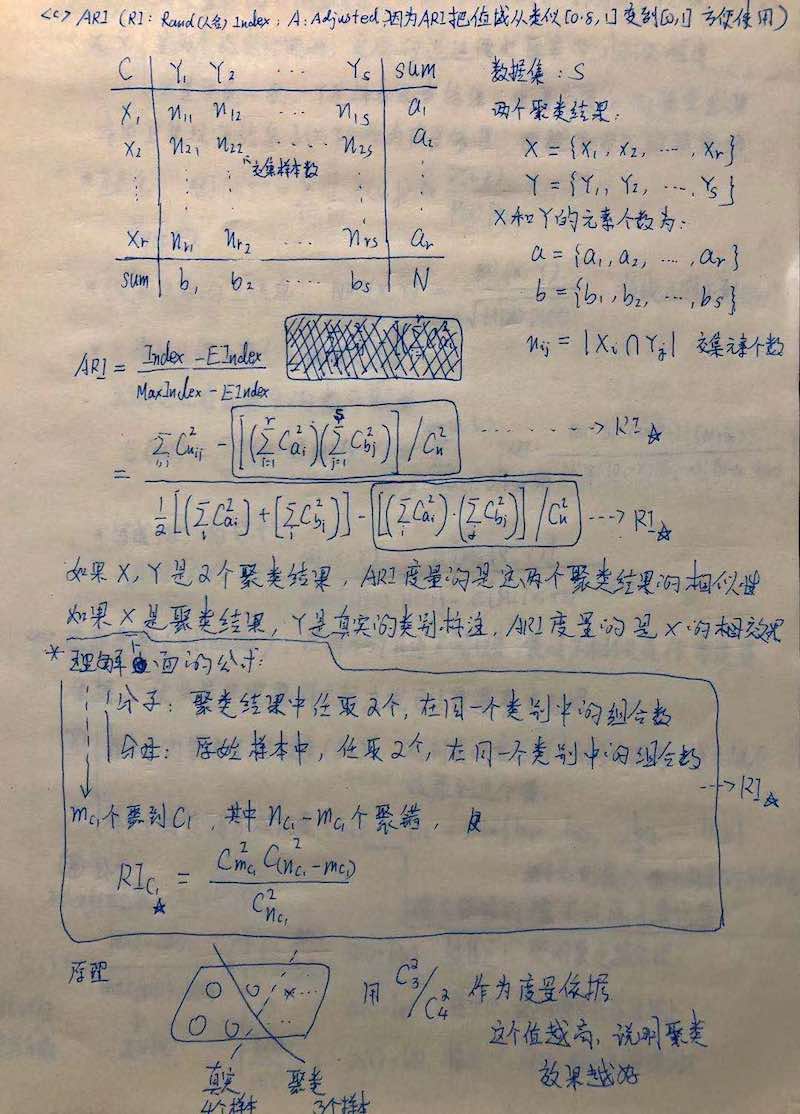 <c> ARI (RI: Rand(人名) Index; A: Adjusted, 因为ARI把值域从类似[0.8,1]变到[0,1] 方便使用)
C Y₁ Y₂ ⋯ Yₛ sum
X₁ n₁₁ n₁₂ ⋯ n₁ₛ a₁
X₂ n₂₁ n₂₂ ⋯ n₂ₛ a₂
交集样本数
⋮ ⋮ ⋮ ⋮ ⋮
Xᵣ nᵣ₁ nᵣ₂ ⋯ nᵣₛ aᵣ
sum b₁ b₂ ⋯ bₛ N
数据集: S
两个聚类结果:
X = {X₁, X₂, ⋯, Xᵣ}
Y = {Y₁, Y₂, ⋯, Yₛ}
X和Y的元素个数为:
a = {a₁, a₂, ⋯, aᵣ}
b = {b₁, b₂, ⋯, bₛ}
nᵢⱼ = |Xᵢ ∩ Yⱼ| 交集元素个数
ARI = (Index - EIndex) / (MaxIndex - EIndex)
= ∑ᵢ,ⱼ C²ₙᵢⱼ - [(∑ʳᵢ₌₁ C²ₐᵢ)(∑ˢⱼ₌₁ C²bⱼ)] / C²ₙ ⋯⋯→ RI☆
½[(∑ᵢ C²ₐᵢ) + [∑ C²bⱼ)] - [(∑ᵢ C²ₐᵢ)·(∑ⱼ C²bⱼ)] / C²ₙ ⋯→ RI☆
如果X, Y是2个聚类结果, ARI度量的是这两个聚类结果的相似性
如果X是聚类结果, Y是真实的类别标注, ARI度量的是X的相效果
* 理解上面的公式:
分子: 聚类结果中任取2个, 在同一个类别中的组合数
分母: 原始样本中, 任取2个, 在同一个类别中的组合数
→ RI☆
m_C₁个聚到C₁, 其中n_C₁-m_C₁个聚错,
RI_C₁☆ = C²_m_C₁ C²_(n_C₁-m_C₁) / C²_n_C₁
原理
用 C²₃/C²₄ 作为度量依据
这个值越高, 说明聚类
效果越好
真实 聚类
4个样本 3个样本